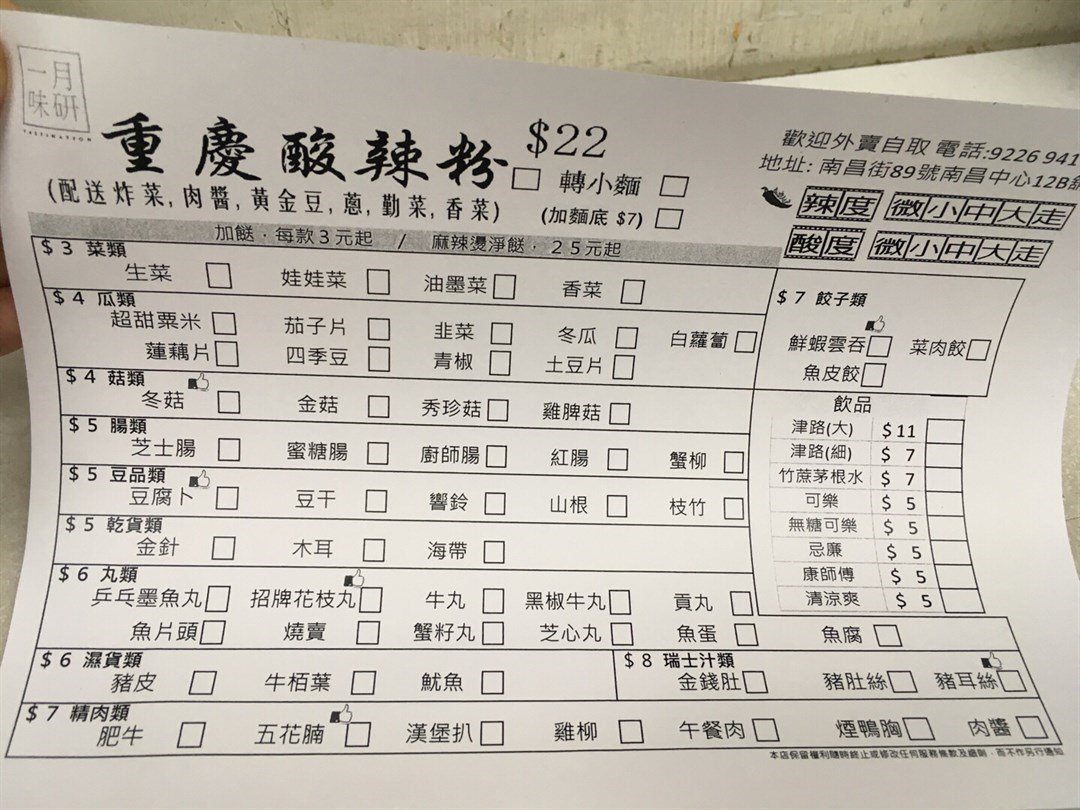 一月
味研
重慶酸辣粉 $22
歡迎外賣自取 電話:9226 941
地址: 南昌街89號南昌中心12B
轉小麵
(配送炸菜,肉醬,黃金豆,蔥,勤菜,香菜)
(加麵底 $7)
辣度 微小中大走
酸度 微小中大走
加餸,每款3元起 / 麻辣燙淨餸,25元起
$3 菜類
生菜 娃娃菜 油墨菜 香菜
$4 瓜類
超甜粟米 茄子片 韭菜 冬瓜 白蘿蔔
蓮藕片 四季豆 青椒 土豆片
$4 菇類
冬菇 金菇 秀珍菇 雞脾菇
$5 腸類
芝士腸 蜜糖腸 廚師腸 紅腸 蟹柳
$5 豆品類
豆腐卜 豆干 響鈴 山根 枝竹
$5 乾貨類
金針 木耳 海帶
$6 丸類
乒乓墨魚丸 招牌花枝丸 牛丸 黑椒牛丸 貢丸
魚片頭 燒賣 蟹籽丸 芝心丸 魚蛋 魚腐
$6 濕貨類
豬皮 牛栢葉 魷魚
$7 精肉類
肥牛 五花腩 漢堡扒 雞柳 午餐肉 煙鴨胸 肉醬
$7 餃子類
鮮蝦雲吞 菜肉餃
魚皮餃
飲品
津路(大) $11
津路(細) $ 7
竹蔗茅根水 $ 7
可樂 $ 5
無糖可樂 $ 5
忌廉 $ 5
康師傅 $ 5
清涼爽 $ 5
$8 瑞士汁類
金錢肚 豬肚絲 豬耳絲
本店保留權利隨時終止或修改任何服務條款及細則,而不作另行通知